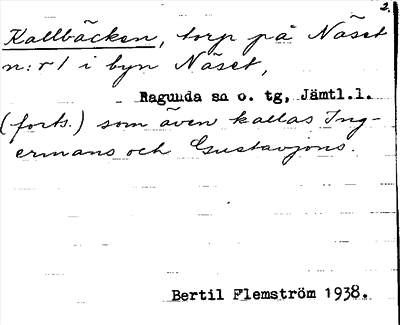 2.
Kallbäcken, torp på Näset
n:r 1 i byn Näset,
Ragunda sn o. tg, Jämtl.l.
(forts.) som även kallas Ing-
ermans och Gustavjons.
Bertil Flemström 1938.